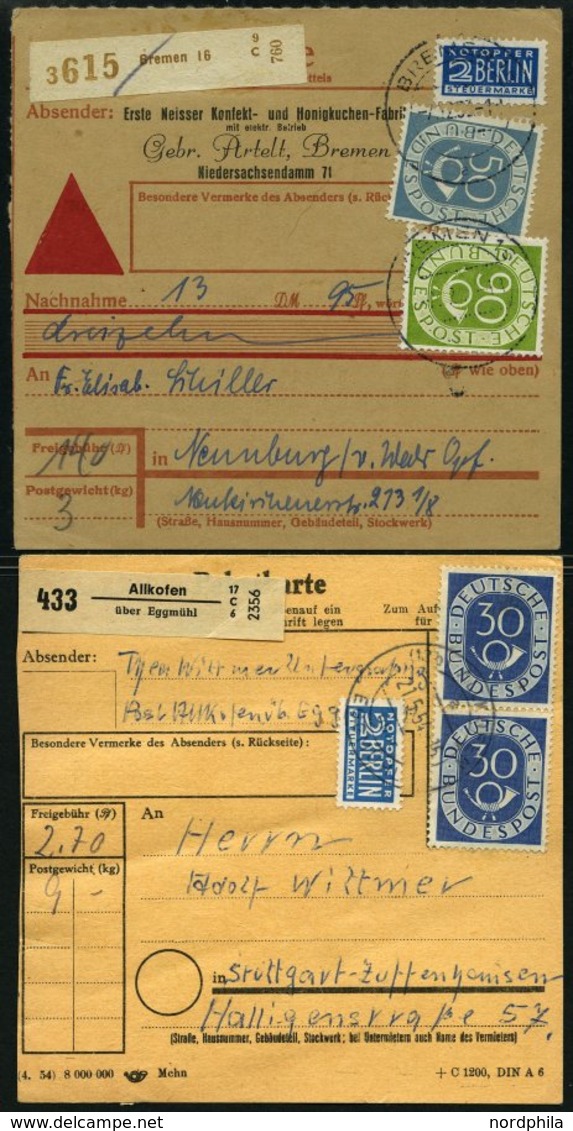 3615 Bremen 16 9 C 760
NOTOPFER
2 BERLIN
STEUERMARKE
Absender: Erste Neisser Konfekt- und Honigkuchen-Fabri
mit elektr. Betrieb
Gebr. Artelt, Bremen
Niedersachsendamm 71
50 DEUTSCHE BUNDESPOST
Besondere Vermerke des Absenders (s. Rück
90 DEUTSCHE BUNDESPOST
Nachnahme 13 DM 95 Pf, wört
dreizehn
An Fr. Elisab. Schiller (Pf wie oben)
Freigebühr 140
in Neunburg/v. Wald Opf.
Postgewicht (kg) 3
Neukirchenerstr. 213 1/8
(Straße, Hausnummer, Gebäudeteil, Stockwerk)
433 Allkofen
über Eggmühl
17 C 6 2356
karte
senauf ein
hrift legen
Zum Auf
für
DEUTSCHE BUNDESPOST 30
Absender:
Besondere Vermerke des Absenders (s. Rückseite):
NOTOPFER
2 BERLIN
STEUERMARKE
DEUTSCHE BUNDESPOST 30
Freigebühr
2.70
An Herrn
Postgewicht (kg)
9 -
Adolf Wittmer
in Stuttgart-Zuffenhausen
Halligenstraße 57.
(Straße, Hausnummer, Gebäudeteil, Stockwerk; bei Untermietern auch Name des Vermieters)
(4. 54) 8 000 000 Mchn + C 1200, DIN A 6
www.nordphila.com